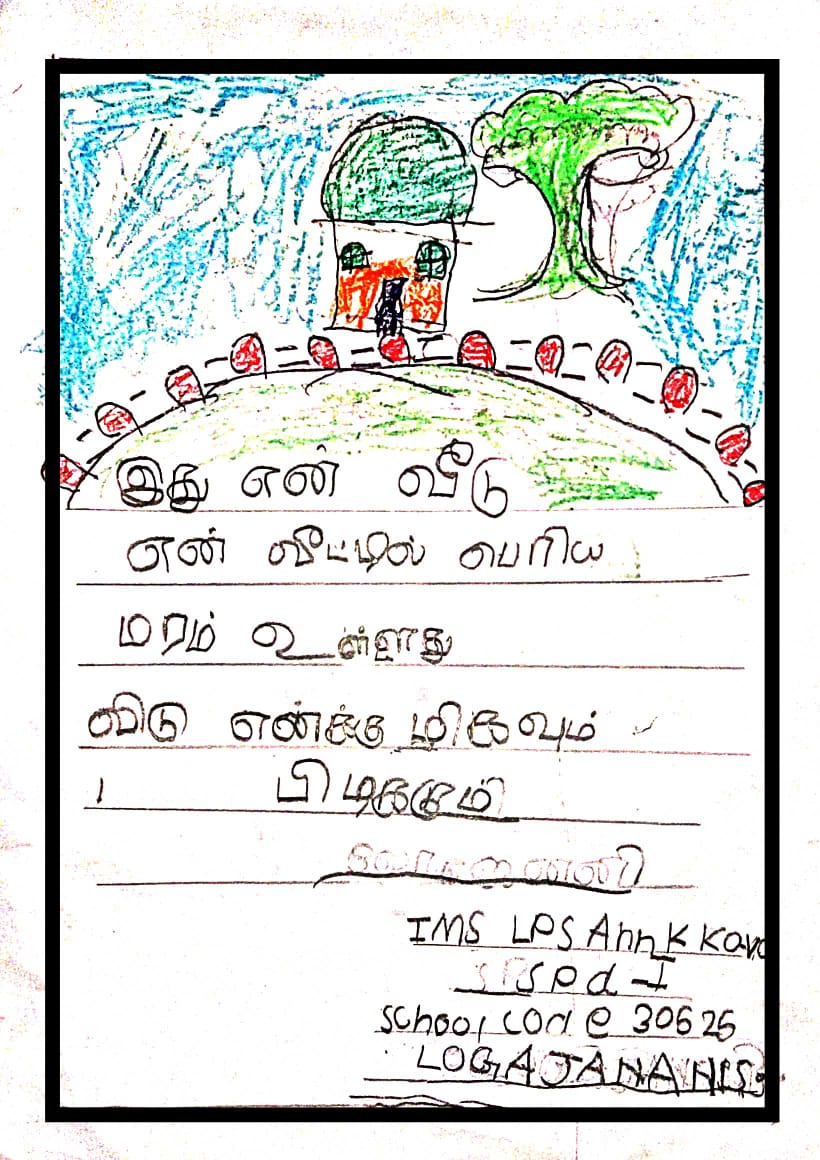 இது என் வீடு
என் வீட்டில் பெரிய
மரம் உள்ளது
விடு எனக்கு மிகவும்
பிடிக்கும்
லோகஜனனி
IMS LPS Ann K Kava
STD - I
School code 30625
LOGAJANANI S